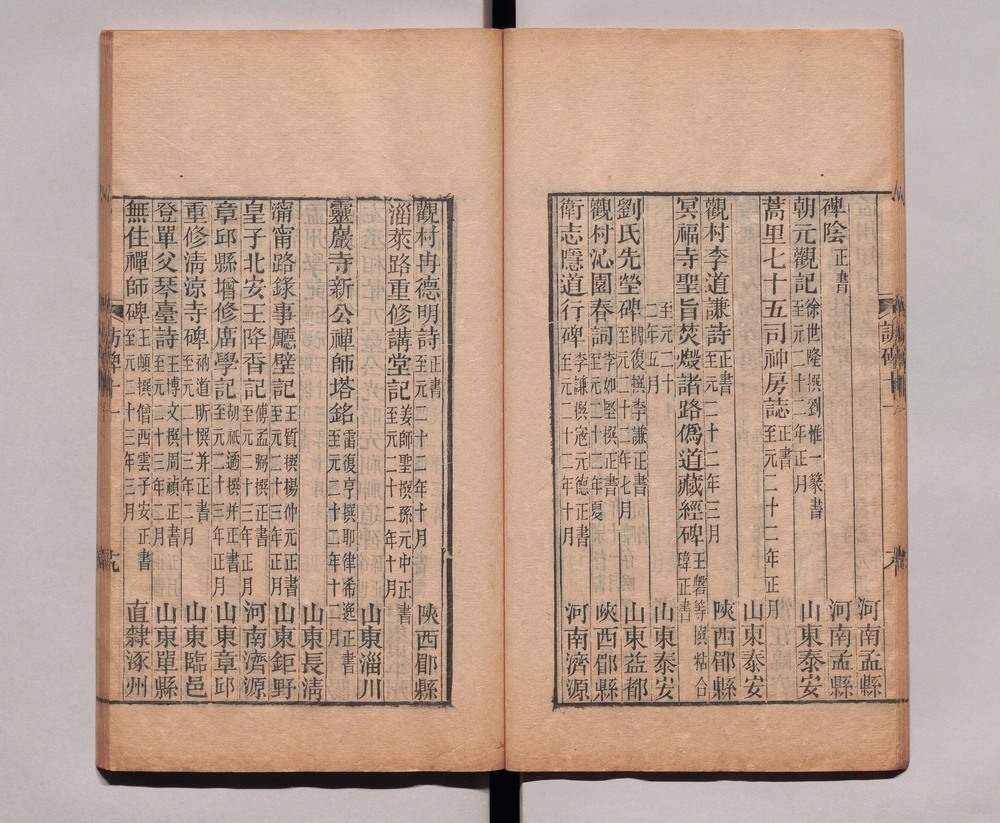 河南孟縣
碑陰 正書 河南孟縣
朝元觀記 徐世隆撰劉惟一篆書 至元二十二年正月 山東泰安
蒿里七十五司神房誌 正書 至元二十二年正月 山東泰安
觀村李道謙詩 正書 至元二十二年三月 陝西鄠縣
冥福寺聖旨焚燬諸路僞道藏經碑 王磐等撰粘合瑋正書
至元二十二年五月 山東泰安
劉氏先塋碑 閻復撰李謙正書 至元二十二年七月 山東益都
觀村沁園春詞 李如堅撰正書 至元二十二年夏 陝西鄠縣
衛志隱道行碑 李謙撰寇元德正書 至元二十二年十月 河南濟源
觀村冉德明詩 正書 至元二十二年十月 陝西鄠縣
淄萊路重修講堂記 姜師聖撰孫元中正書 至元二十二年十月
山東淄川
靈巖寺新公禪師塔銘 雷復亨撰耶律希逸正書 至元二十二年十一月
山東長清
濟甯路錄事廳壁記 王質撰楊仲元正書 至元二十三年正月 山東鉅野
皇子北安王降香記 傅孟弼撰正書 至元二十三年正月 河南濟源
章邱縣增修廟學記 胡祇遹撰并正書 至元二十三年正月 山東章邱
重修清涼寺碑 道昕撰并正書 至元二十三年二月 山東臨邑
登單父琴臺詩 王博文撰周禎正書 至元二十三年二月 山東單縣
無住禪師碑 王頔撰僧西雲子安正書 至元二十三年三月 直隸涿州
訪碑十一